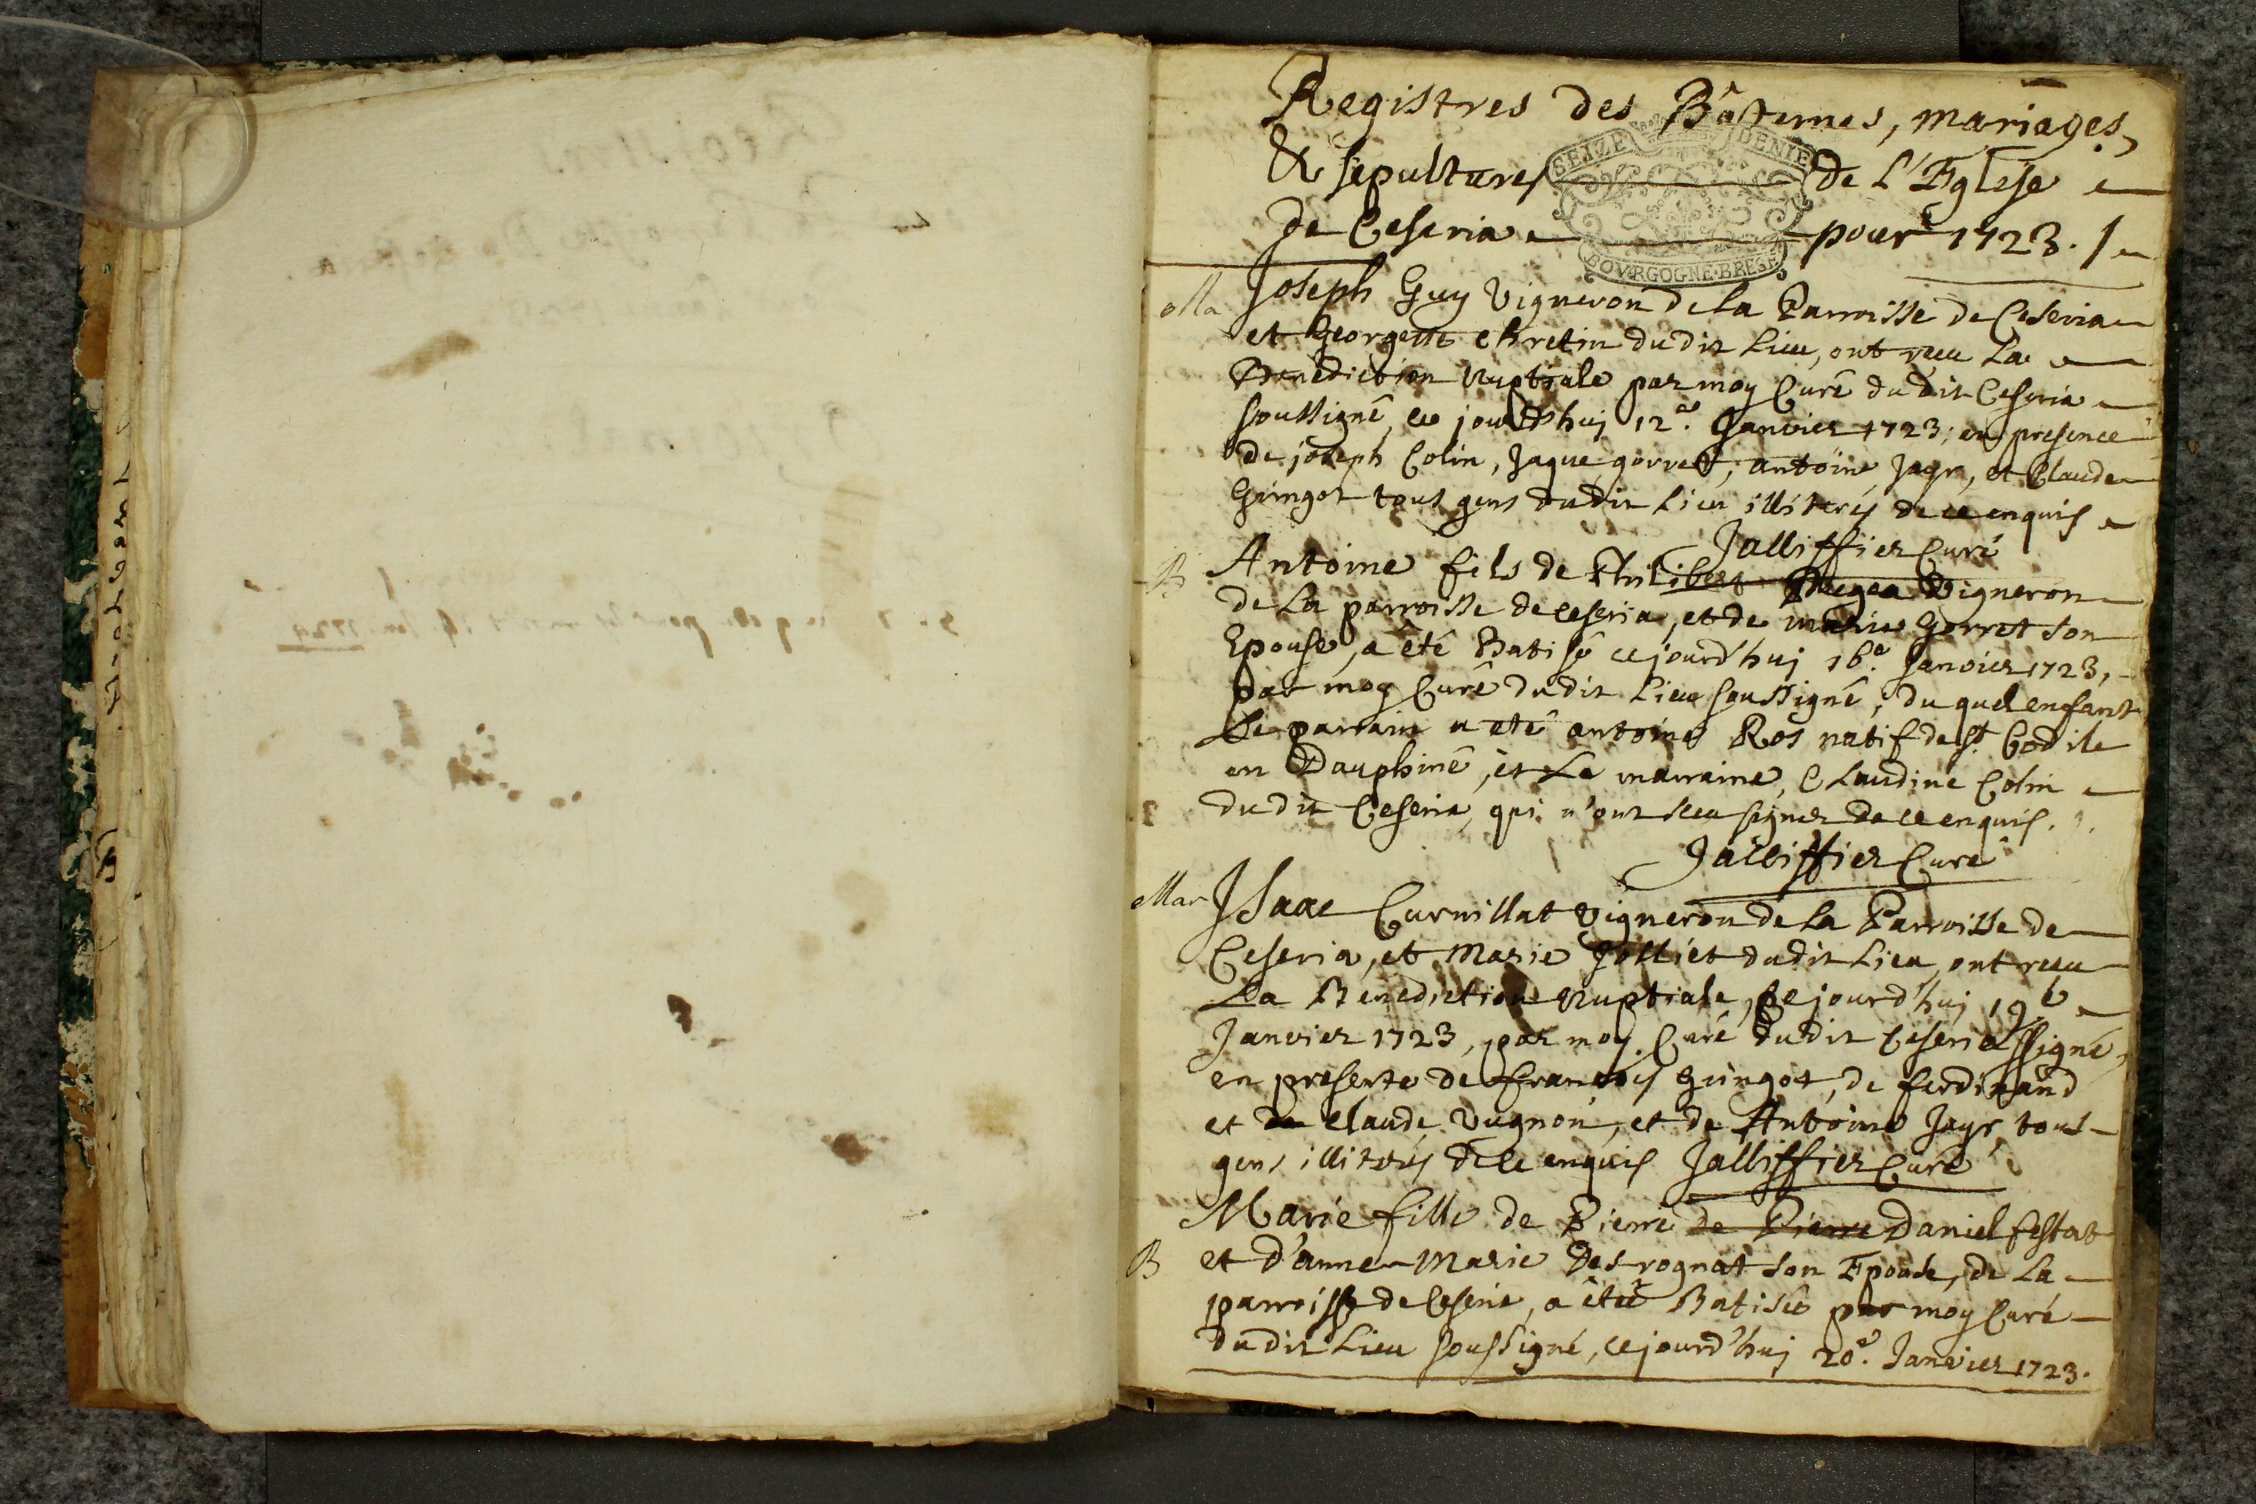 Registres des Bâtemes, mariages,
& sepultures de L'Eglise
SEIZE DENIE
de Ceseria pour 1723.
BOURGOGNE·BRESE
Ma Joseph Guy Vigneron de la Parroisse de Ceseria
et Georgette Bretin dudit Lieu, ont reçu La
Benediction Nuptiale par moy Curé dudit Ceseria
soussigné, ce jourd'huj 12e. Janvier 1723; en presence
de joseph Colin, Jaque gorret, antoine Jayr, et Claude
Guingot tous gens dudit Lieu illiterés de ce enquis
Jalliffier Curé
B Antoine fils de Philibert Vigneron
de La parroisse de ceseria, et de marie Gorret son
Epouse, a été Batisé cejourd'huj 16e. Janvier 1723,
par moy Curé dudit Lieu soussigné, du quel enfant
Le parrain a été antoine Ros natif de st
en Dauphiné, et La marraine, Claudine Colin
dudit Ceseria, qui n'ont sceu signer de ce enquis.
Jalliffier Curé
Mar Isaac Curnillat Vigneron de la Parroisse de
Ceseria, et Marie Jolliet dudit Lieu, ont reçu
La Benediction Nuptiale, cejourd'huj 19e
Janvier 1723, par moy Curé dudit Ceseria ssigné,
en presente de François Guingot, de ferdinand
et de Claude Vugnon, et de Antoine Jayr, tous
gens illiterés de ce enquis Jalliffier Curé
Marie fille de Pierre de Pierre Daniel festat
B et d'anne-Marie Desrognat son Epouse, de La
parroisse de Ceseria, a été Batisée par moy Curé
dudit Lieu soussigné, cejourd'huj 20e. Janvier 1723.